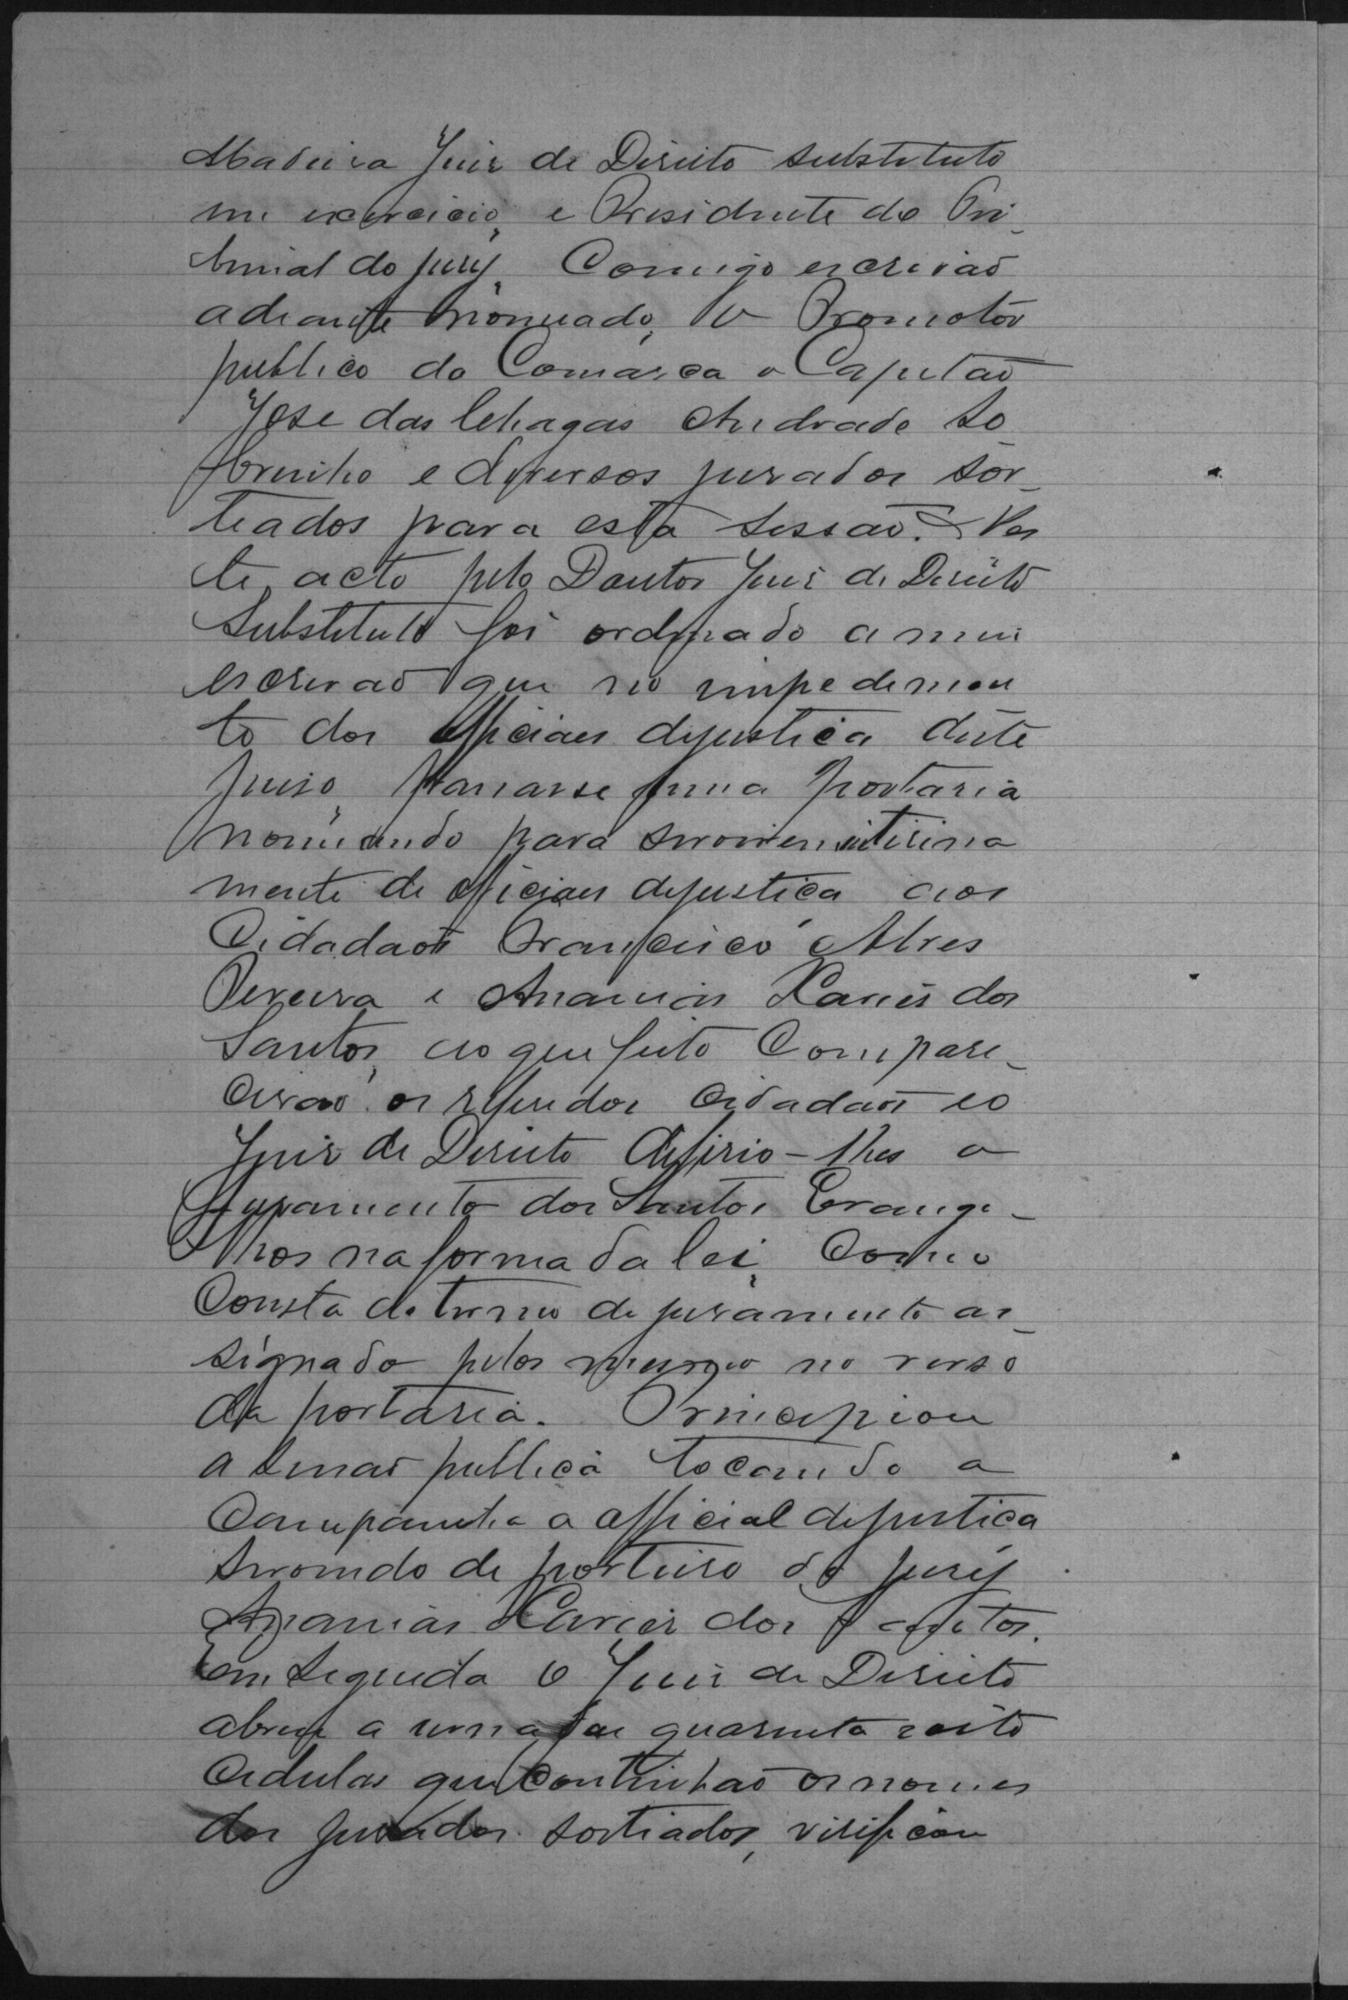 Madeira Juiz de Direito substituto
em exercicio, e Presidente do Tri-
bunal do Jury, Comigo escrivão
adeante nomeado, o Promotor
publico da Comarca o Capitão
Jose das Chagas Andrade So
brinho e diversos jurados sor-
teados para esta sessão. Nes
te acto pelo Doutor Juiz de Direito
Substituto foi ordenado a mim
escrivão que no impedimen
to dos officiaes dejustiça deste
Juiso, passasse uma portaria
nomeando para servirem interina
mente de officiaes dejustiça aos
Cidadãos Francisco Alves
Pereira e Ananias Xavier dos
Santos, ao que feito Compare-
cerão os referidos Cidadãos eo
Juiz de Direito deferio-lhes o
Juramento dos Santos Evange-
lhos na forma da lei, Como
Consta do termo de juramento as-
signado pelos mesmos no verso
da portaria. Principiou
a sessão publica tocando a
Campainha o official dejustiça
servindo de porteiro do jury
Ananias Xavier dos Santos.
Em seguida o Juiz de Direito
abrio a urna das quarenta eoito
Cedulas que Continhão os nomes
dos jurados sorteados, verificou